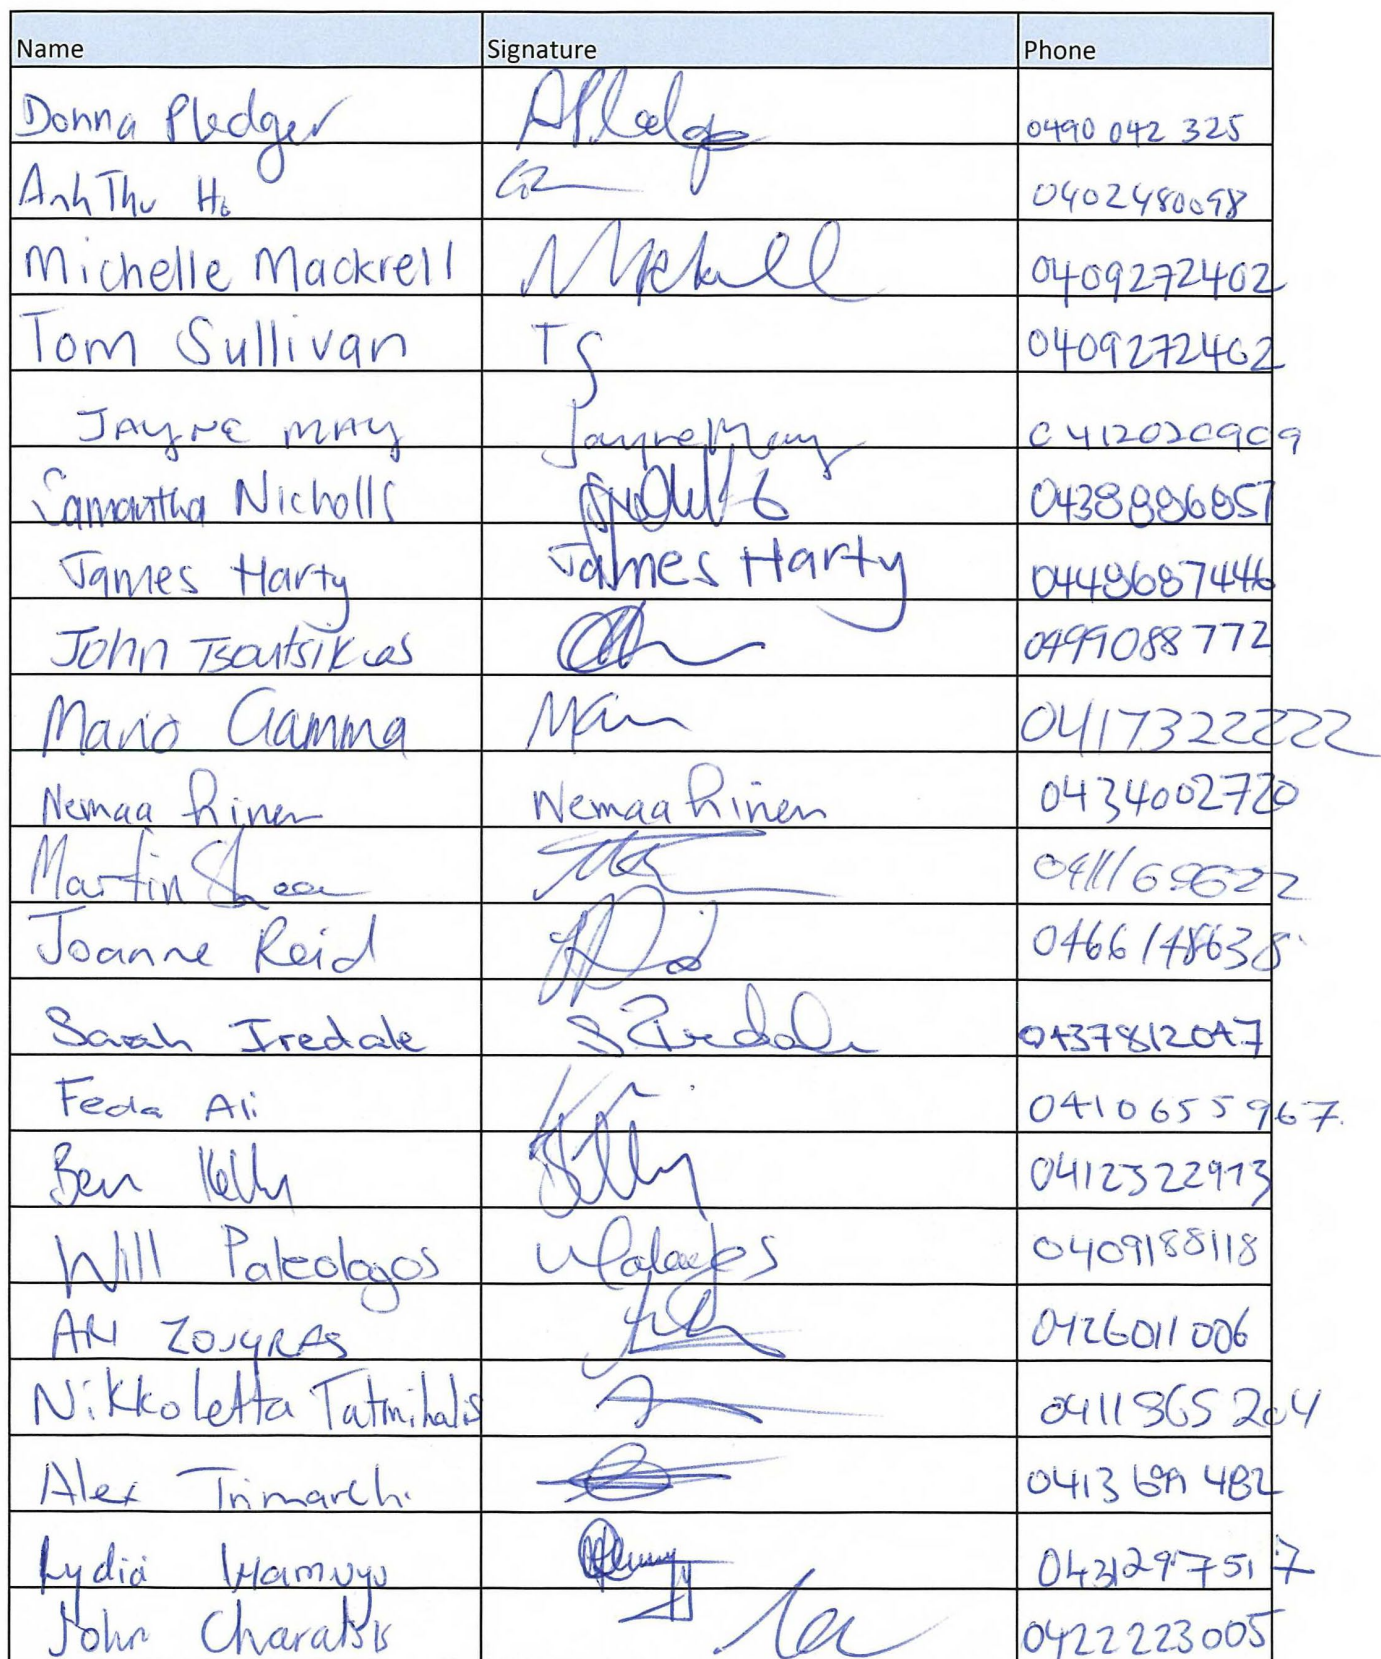 Name Signature Phone
Donna Pledger 0490 042 325
Anh Thu Ho 0402480098
Michelle Mackrell 0409272402
Tom Sullivan TS 0409272402
JAYNE MAY Jayne May 0412020909
Samantha Nicholls 0438886857
James Harty James Harty 0448687446
John Tsoutsikas 0499088772
Mario Giamma 0417322222
Nemaa Rinen Nemaa Rinen 0434002720
Martin
Joanne Reid 0466148638
Sarah Iredale S Iredale 0437812047
Feda Ali 0410655967
Ben Kelly 0412322913
Will Paleologos 0409188118
ARI 0426011006
Nikkoletta Tatmihalis 0411865204
Alex Trimarchi 0413 699 482
Lydia Wamuyu 0431297517
John Charatsis 0422223005